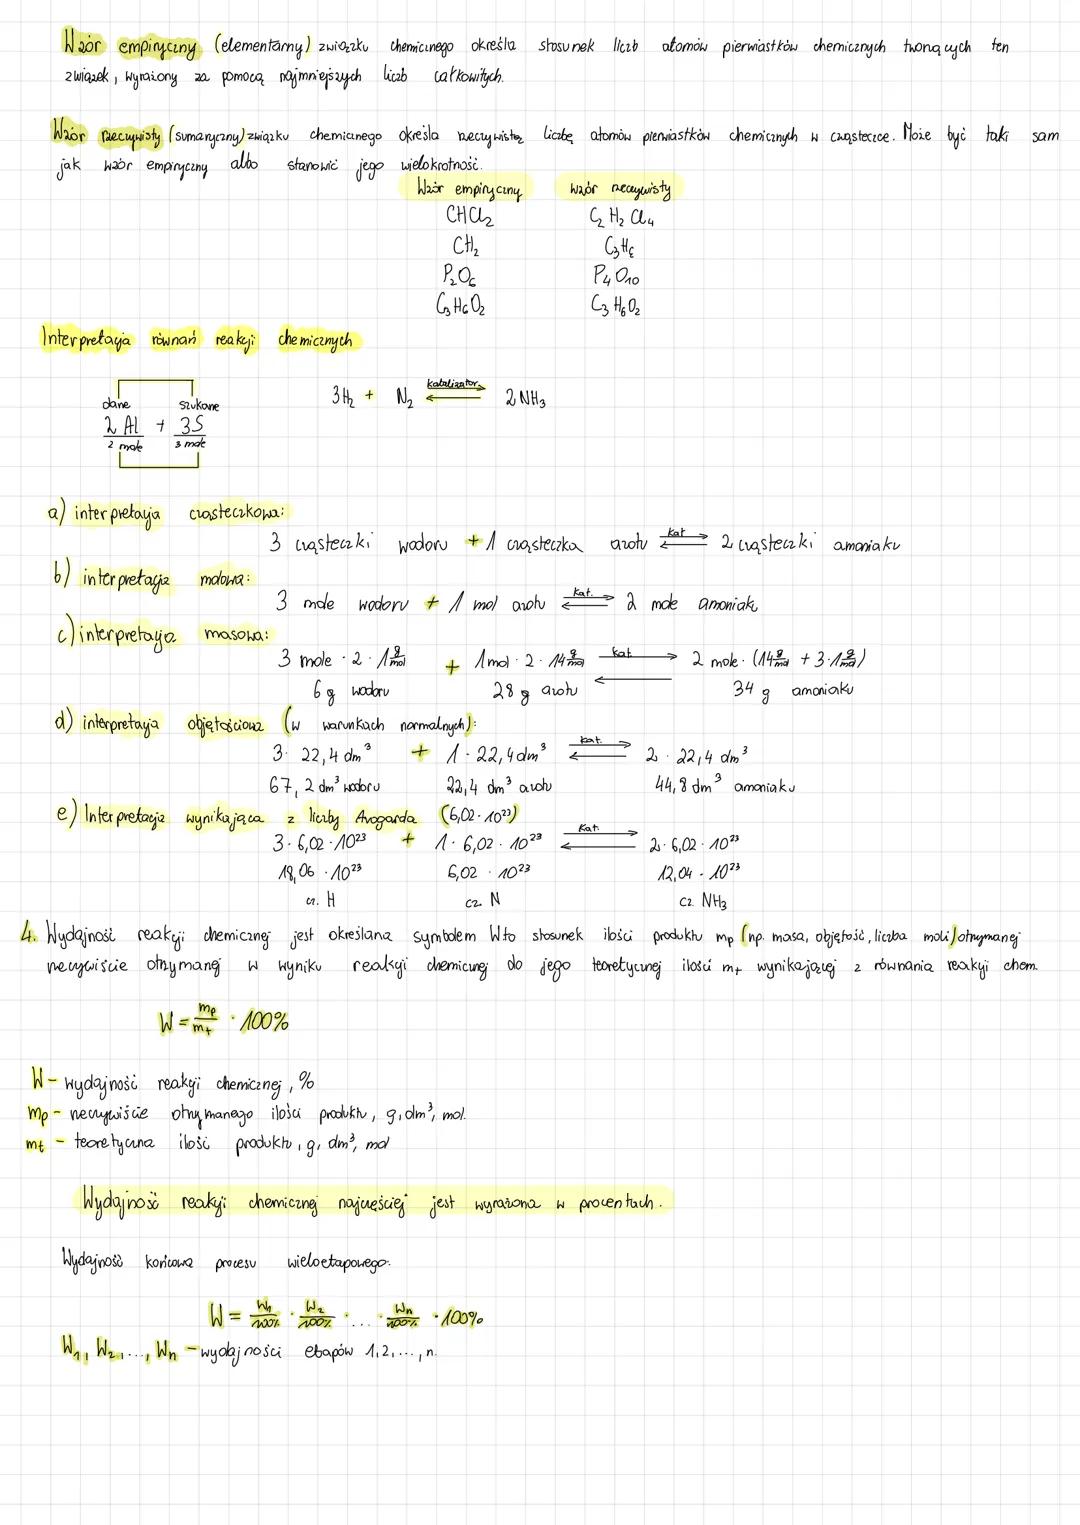 Wzór empiryczny (elementarny) związku chemicznego określa stosunek liczb atomów pierwiastków chemicznych tworzących ten
związek, wyrażony za pomocą najmniejszych liczb całkowitych.
Wzór rzeczywisty (sumaryczny) związku chemicznego określa rzeczywistą liczbę atomów pierwiastków chemicznych w cząsteczce. Może być taki sam
jak wzór empiryczny albo stanowić jego wielokrotność.
Wzór empiryczny wzór rzeczywisty
CHCl₂ C₂H₂Cl₄
CH₂ C₃H₆
P₂O₅ P₄O₁₀
C₃H₆O₂ C₃H₆O₂
Interpretacja równań reakcji chemicznych
dane szukane
2 Al + 3S
2 mole 3 mole
3H₂ + N₂ ⇄ katalizator 2NH₃
a) interpretacja cząsteczkowa:
3 cząsteczki wodoru + 1 cząsteczka azotu ⇄ kat 2 cząsteczki amoniaku
b) interpretacja molowa:
3 mole wodoru + 1 mol azotu ⇄ kat. 2 mole amoniaku
c) interpretacja masowa:
3 mole · 2 · 1 g/mol + 1 mol · 2 · 14 g/mol ⇄ kat 2 mole · (14 g/mol + 3·1 g/mol)
6 g wodoru 28 g azotu 34 g amoniaku
d) interpretacja objętościowa (w warunkach normalnych):
3 · 22,4 dm³ + 1 · 22,4 dm³ ⇄ kat. 2 · 22,4 dm³
67,2 dm³ wodoru 22,4 dm³ azotu 44,8 dm³ amoniaku
e) Interpretacja wynikająca z liczby Avogarda (6,02 · 10²³)
3 · 6,02 · 10²³ + 1 · 6,02 · 10²³ ⇄ Kat. 2 · 6,02 · 10²³
18,06 · 10²³ 6,02 · 10²³ 12,04 · 10²³
cz. H cz. N cz. NH₃
4. Wydajność reakcji chemicznej jest określana symbolem W to stosunek ilości produktu mp (np. masa, objętość, liczba moli) otrzymanej
rzeczywiście otrzymanej w wyniku reakcji chemicznej do jego teoretycznej ilości mt wynikającej z równania reakcji chem.
W = mp/mt · 100%
W - wydajność reakcji chemicznej, %
mp - rzeczywiście otrzymanego ilości produktu, g, dm³, mol.
mt - teoretyczna ilość produktu, g, dm³, mol
Wydajność reakcji chemicznej najczęściej jest wyrażona w procentach.
Wydajność końcowa procesu wieloetapowego.
W = W₁/100% · W₂/100% · ... · Wn/100% · 100%
W₁, W₂, ..., Wn - wydajności etapów 1,2,...,n.